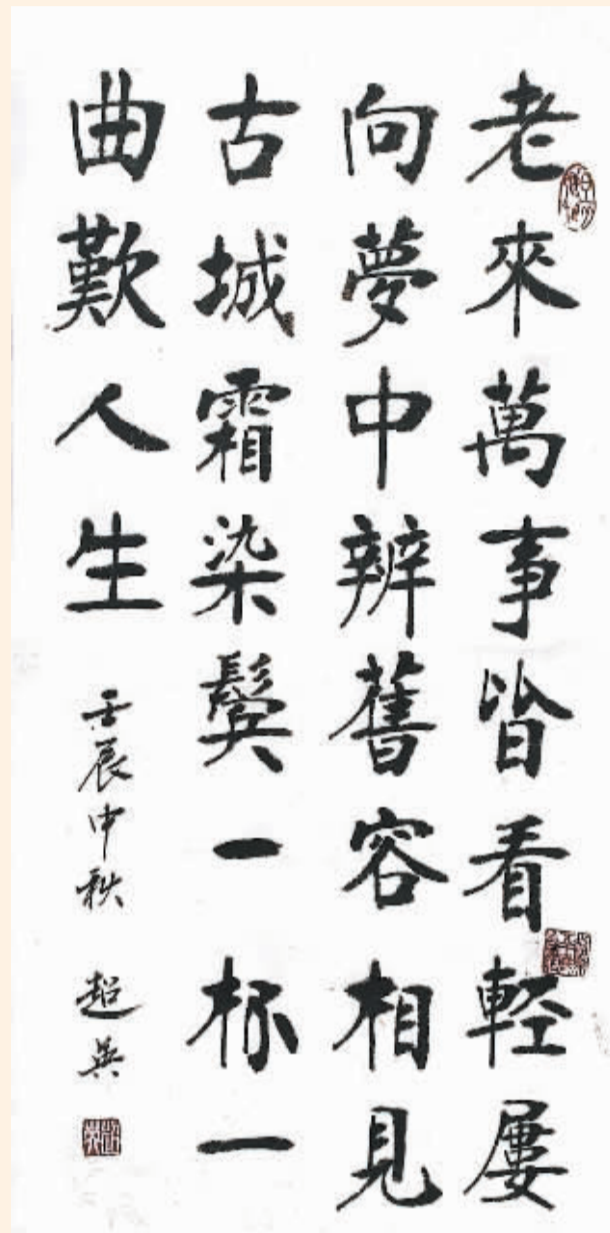 老來萬事皆看輕屢
向夢中辨舊容相見
古城霜染鬓一杯一
曲歎人生
壬辰中秋 超英